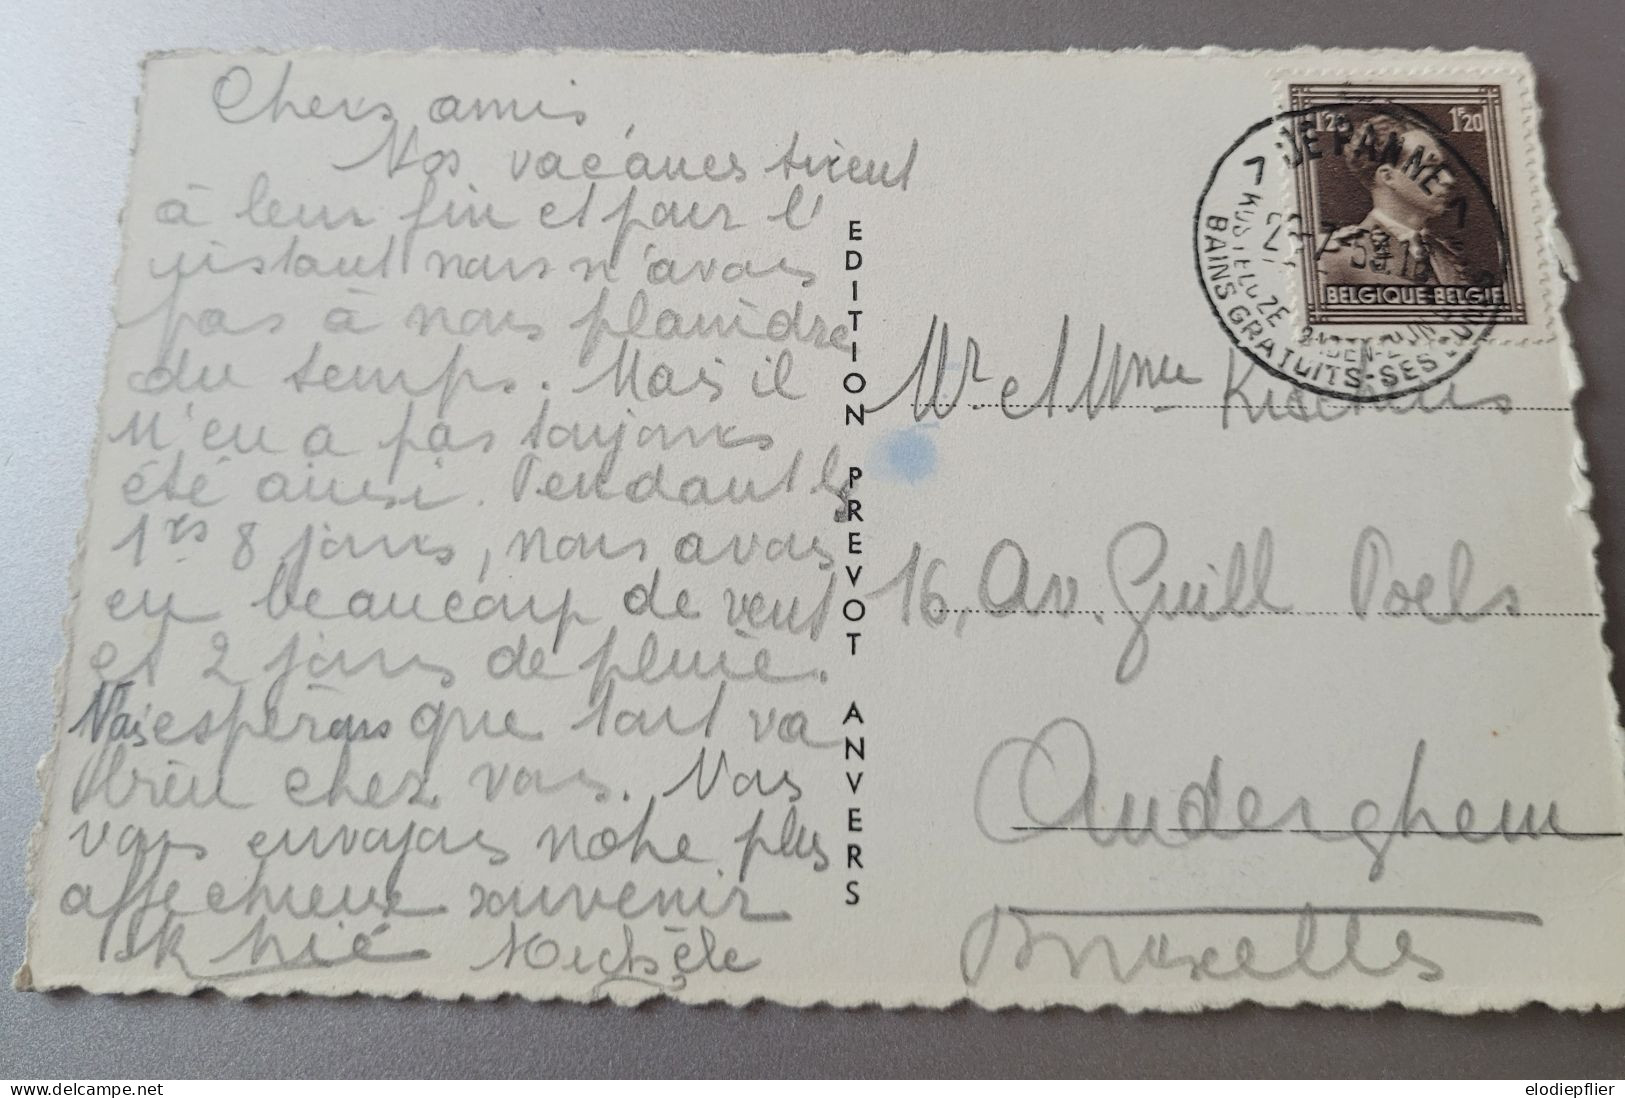 Chers amis,
Nos vacances tirent
à leur fin et pour l'
instant nous n'avons
pas à nous plaindre
du temps. Mais il
n'en a pas toujours
été ainsi. Pendant les
1rs 8 jours, nous avons
eu beaucoup de vent
et 2 jours de pluie.
Nous espérons que tout va
bien chez vous. Nous
vous envoyons notre plus
affectueux souvenir
Michèle
EDITION PREVOT ANVERS
1F20 1F20
BELGIQUE-BELGIE
DE PANNE
BAINS GRATUITS-SES
Mr et Mme
16, Av. Guill Poels
Auderghem
Bruxelles
elodiepflier